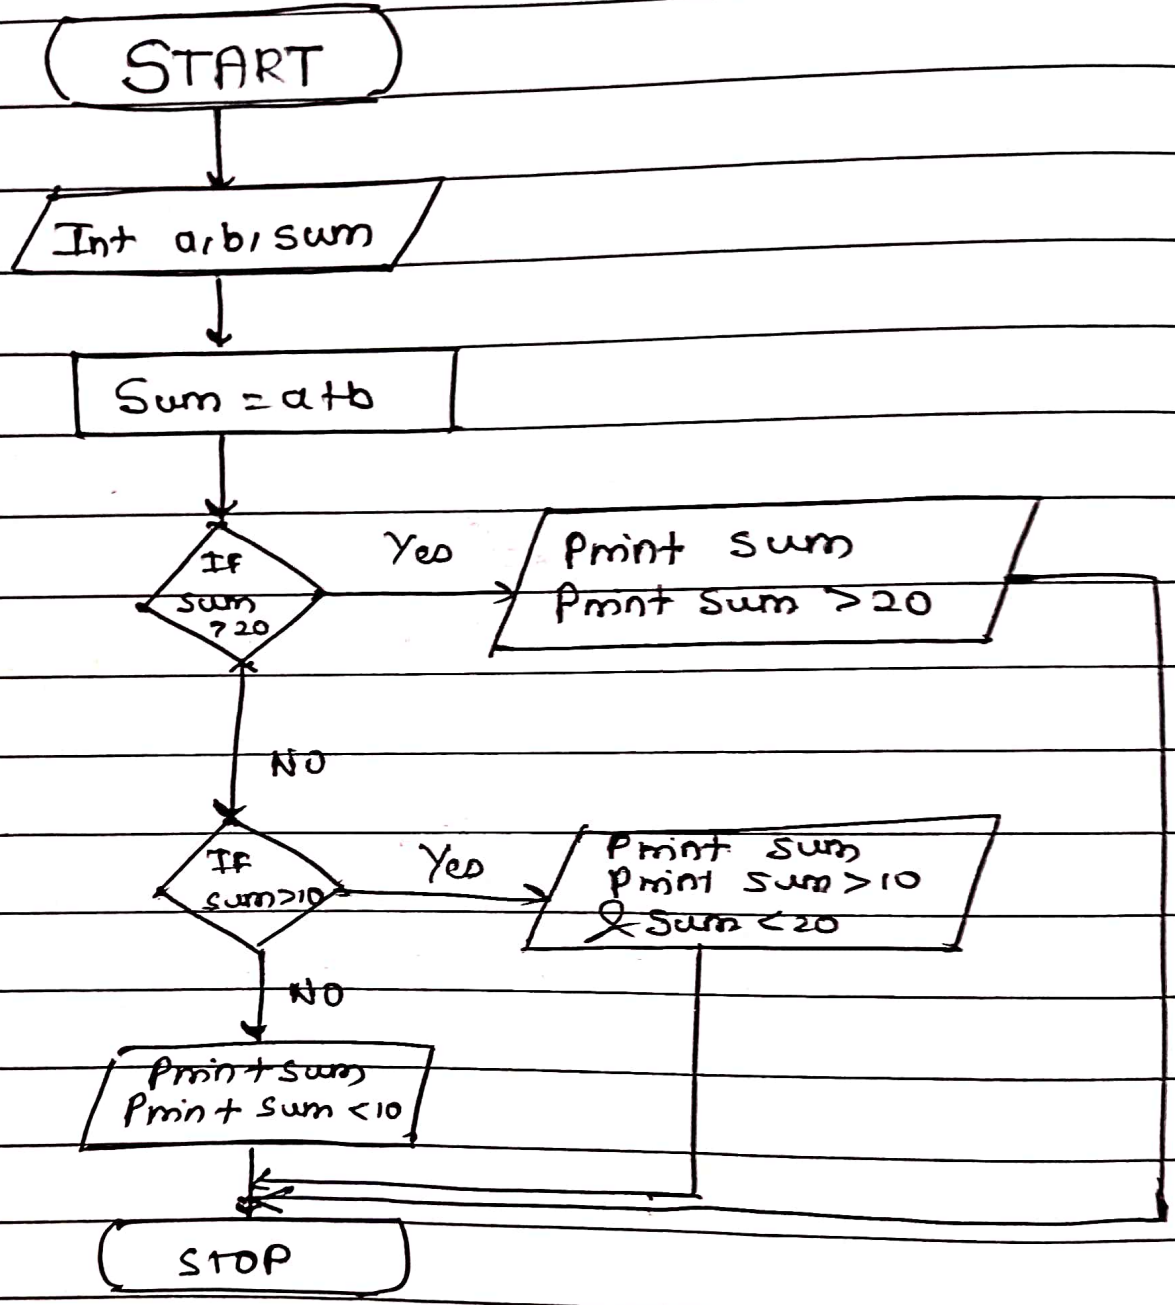 START
Int a, b, sum
Sum = a+b
If
sum
>20
Yes
Print sum
Print sum >20
NO
If
sum>10
Yes
Print sum
Print sum>10
& sum <20
NO
Print sum
Print sum <10
STOP